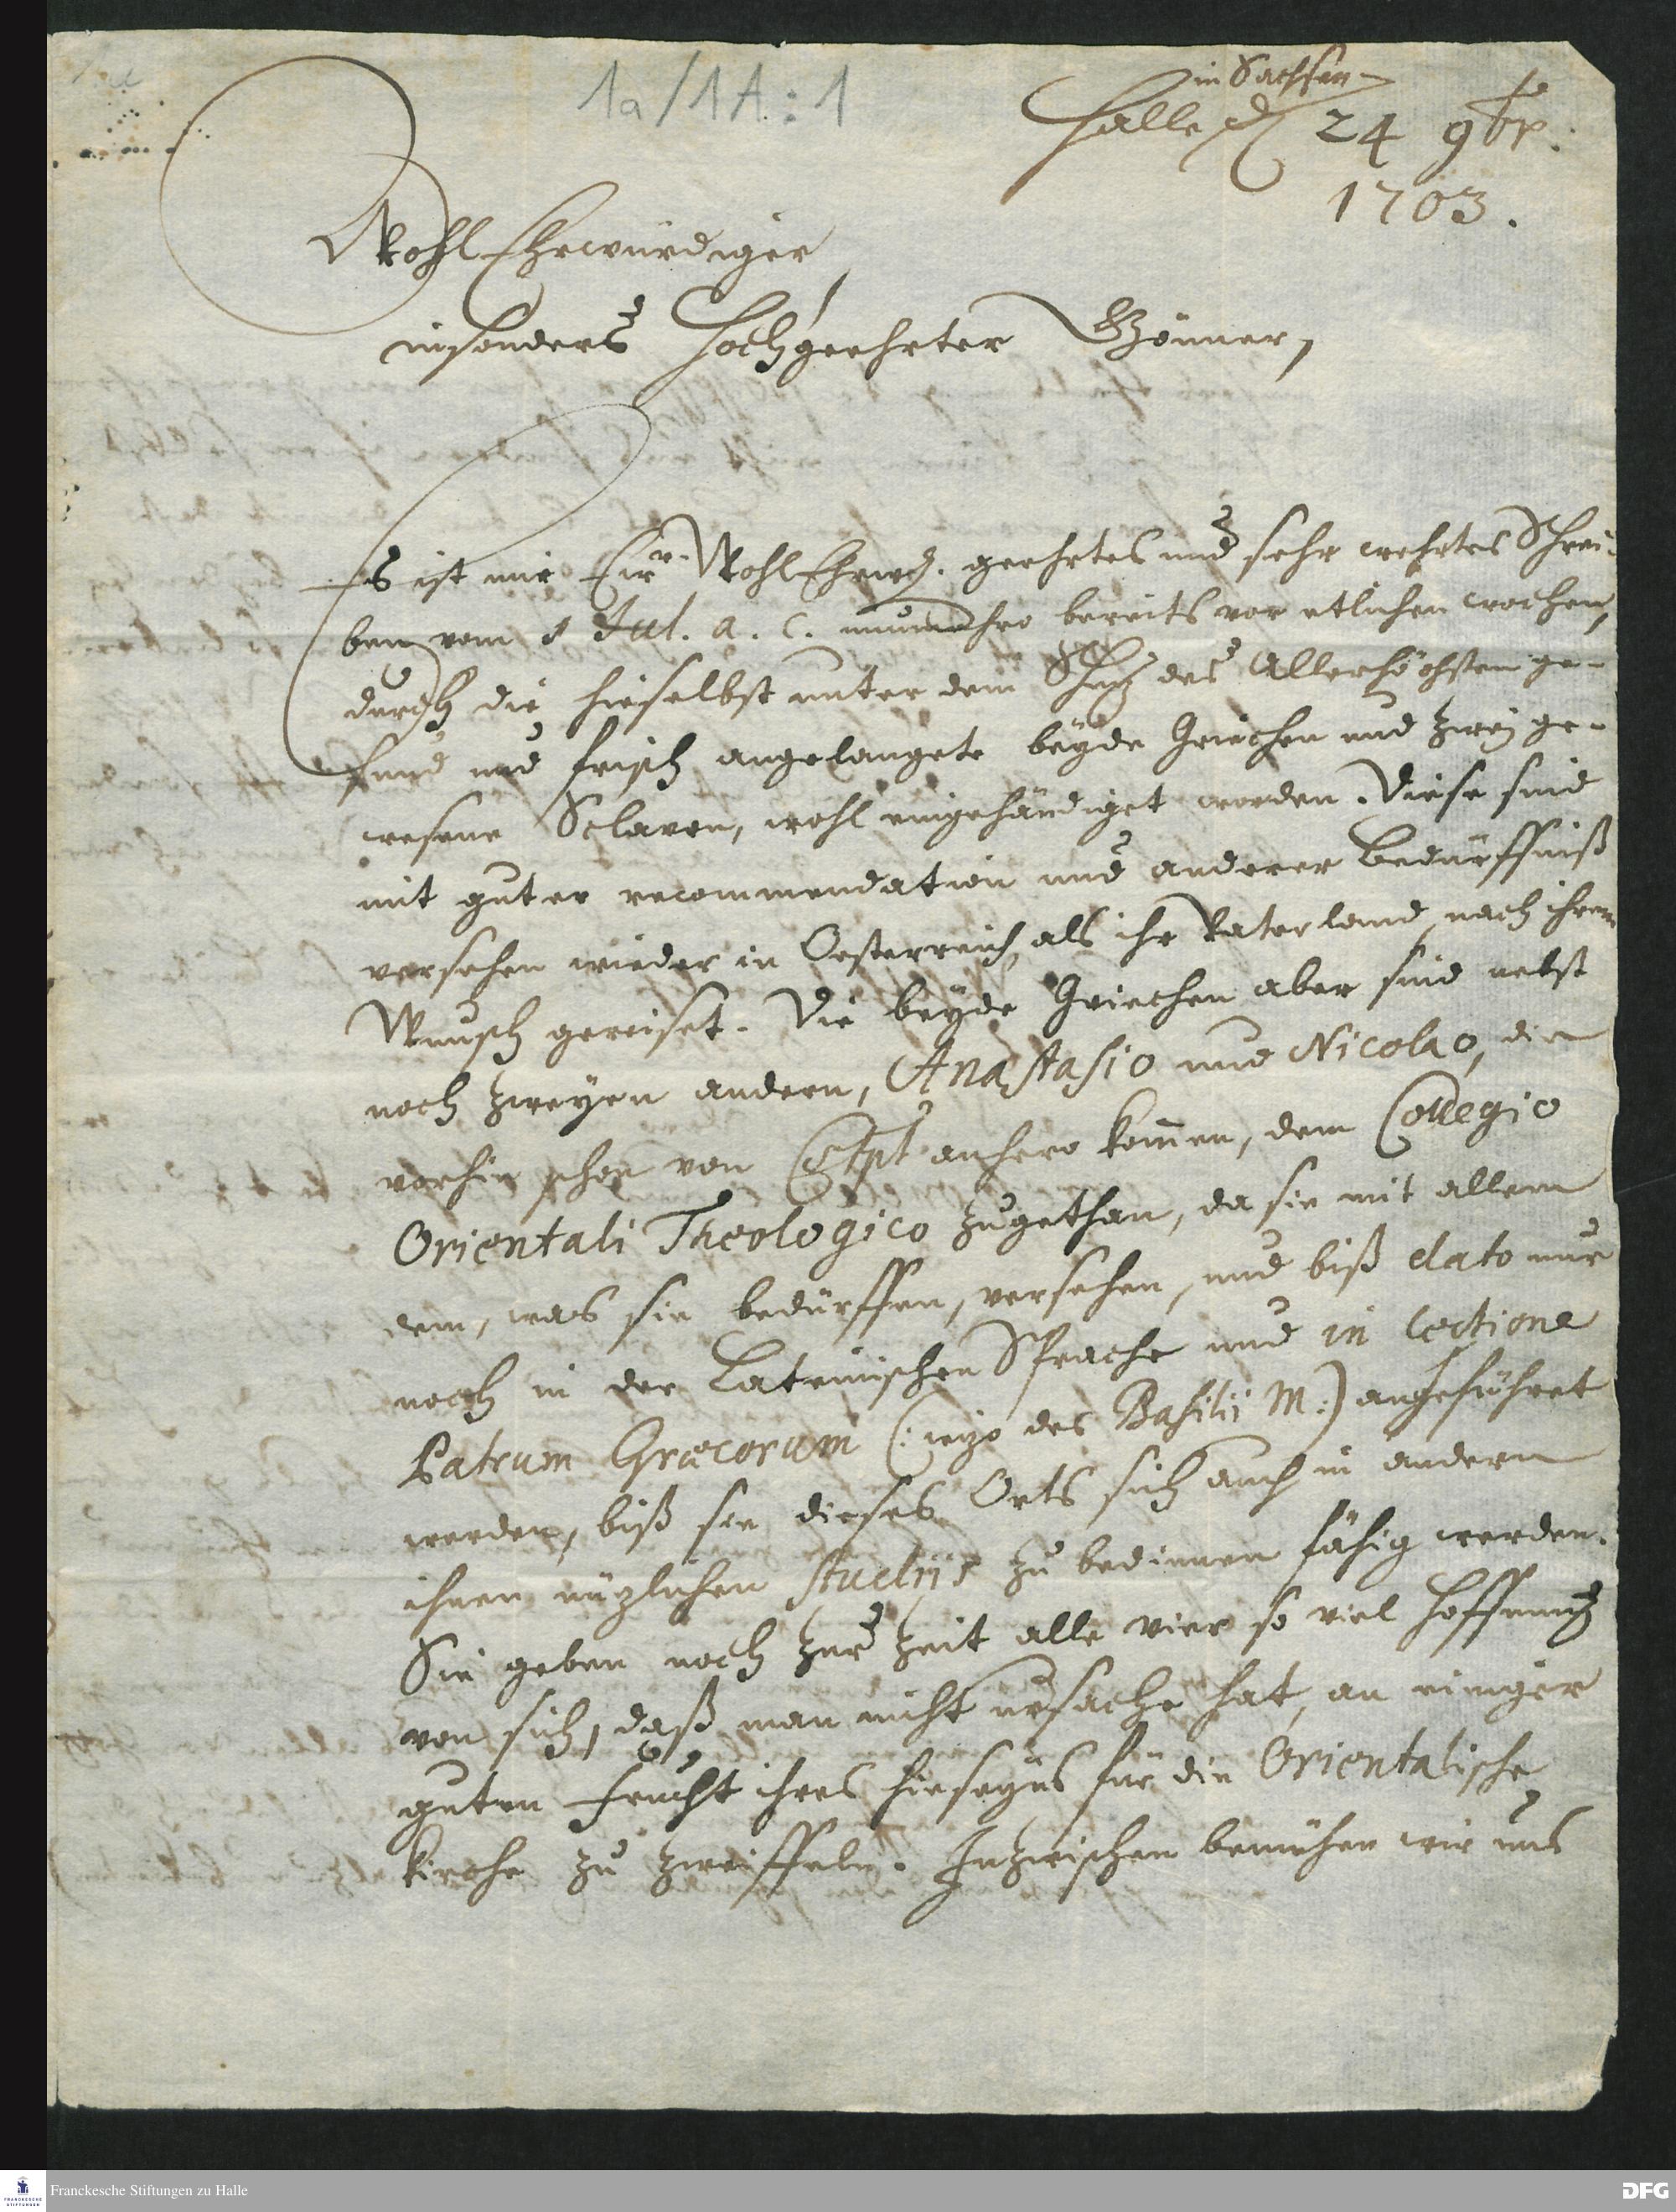 1a/1A:1
in Sachsen
Halle d 24 9br.
1703.
WohlEhrwürdiger,
insonders Hochgeehrter Gönner,
Es ist mir Ew. WohlEhrwd. geehrtes und sehr wehrtes Schrei-
ben vom 1 Jul. a. c. nunmehro bereits vor etlichen wochen,
durch die hieselbst unter dem Schutz des Allerhöchsten ge-
sund und frisch angelangete beyde Griechen und zwey ge-
wesene Sclaven, wohl eingehändiget worden. Diese sind
mit guter recommendation und anderer Bedürffniß
versehen wieder in Oesterreich, als ihr Vaterland, nach ihrem
Wunsch gereiset. Die beyde Griechen aber sind nebst
noch zweyen andern, Anastasio und Nicolao, die
vorhin schon von Cstpl anhero kommen, dem Collegio
Orientali Theologico zugethan, da sie mit allem
dem, was sie bedürffen, versehen, und biß dato nur
noch in der Lateinischen Sprache und in lectione
Patrum Græcorum (: ietzo des Basilii M:) angeführet
werden, biß sie dieses Orts sich auch in andern
ihnen nüzlichen studiis zu bedienen fähig werden.
Sie geben noch zur Zeit alle vier so viel Hoffnung
von sich, daß man nicht ursache hat, an einiger
guten Frucht ihres hierseyns für die Orientalische
Kirche zu zweiffeln. Inzwischen bemühen wir uns
Franckesche Stiftungen zu Halle
DFG